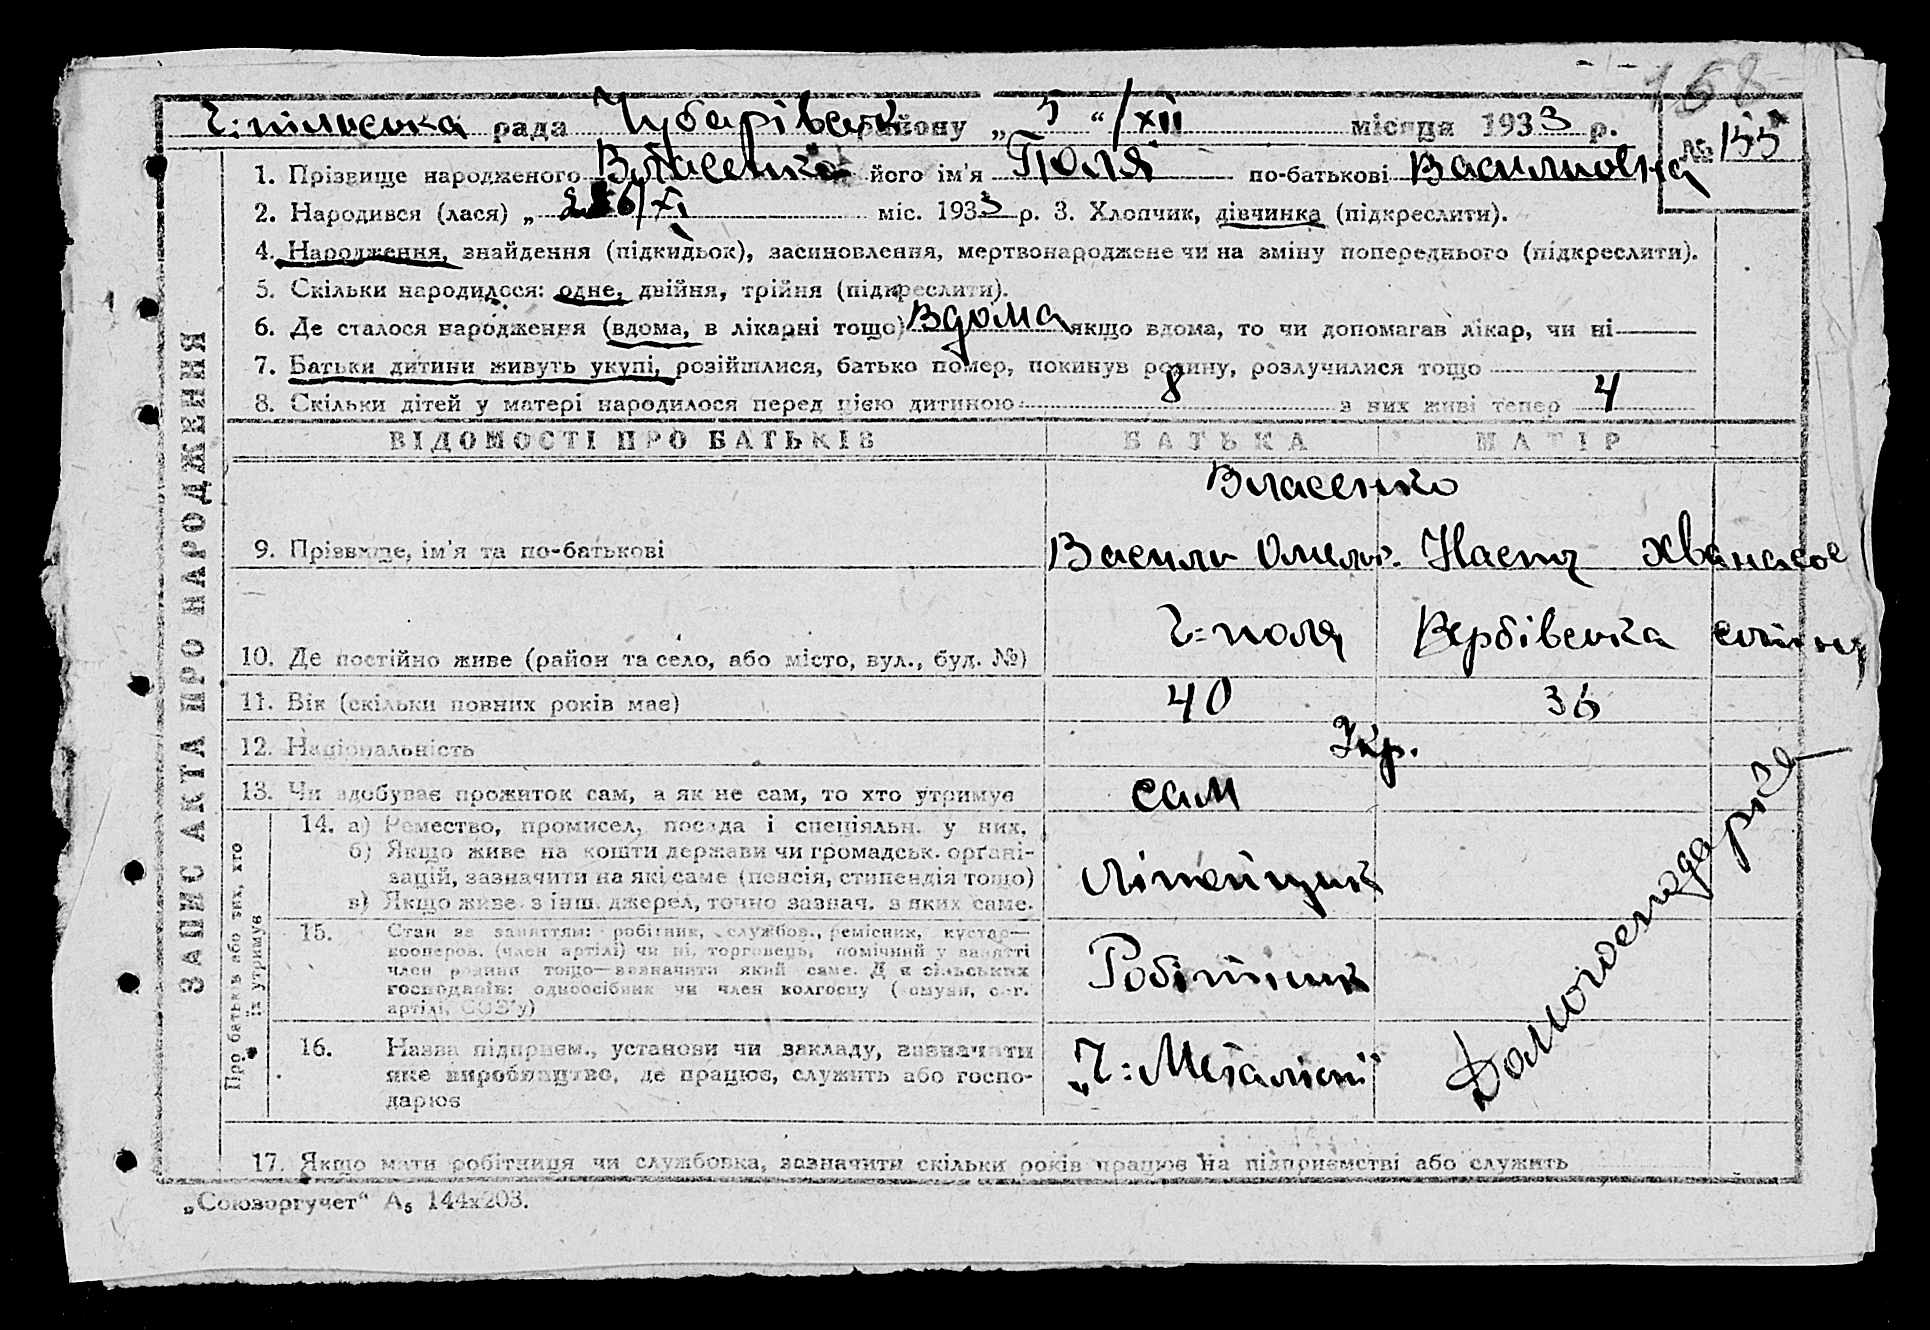 168
Г:пільська рада Чубарівськ району „ 5 “ /XII місяця 1933 р.
№ 155
1. Прізвище народженого Власенко його ім'я Поля по-батькові Василиовна
2. Народився (лася) „ 26/XI міс. 1933 р. 3. Хлопчик, дівчинка (підкреслити).
4. Народження, знайдення (підкидьок), засиновлення, мертвонароджене чи на зміну попереднього (підкреслити).
5. Скільки народилося: одне, двійня, трійня (підкреслити).
6. Де сталося народження (вдома, в лікарні тощо) Вдома якщо вдома, то чи допомагав лікар, чи ні
7. Батьки дитини живуть укупі, розійшлися, батько помер, покинув родину, розлучилися тощо
8. Скільки дітей у матері народилося перед цією дитиною 8 з них живі тепер 4
ЗАПИС АКТА ПРО НАРОДЖЕННЯ
ВІДОМОСТІ ПРО БАТЬКІВ БАТЬКА МАТІР
Власенко
9. Прізвище, ім'я та по-батькові Василь Омель. Настя Хванасов
10. Де постійно живе (район та село, або місто, вул., буд. №) Г:поля Вербівська
11. Вік (скільки повних років має) 40 36
12. Національність Укр.
13. Чи здобуває прожиток сам, а як не сам, то хто утримує сам
Про батьків або тих, хто їх утримує
14. а) Ремество, промисел, посада і спеціяльн. у них.
б) Якщо живе на кошти держави чи громадськ. орґані-
зацій, зазначити на які саме (пенсія, стипендія тощо)
в) Якщо живе з інш. джерел, точно зазнач. з яких саме.
Літейщик
15. Стан за заняттям: робітник, службов., ремісник, кустар—
кооперов. (член артілі) чи ні, торговець, помічний у занятті
член родини тощо—зазначити який саме. Для сільських
господарів: одноосібник чи член колгоспу (комуни, с.-г.
артілі, СОЗ'у)
Робітник
16. Назва підприєм., установи чи закладу, зазначити
яке виробництво, де працює, служить або госпо-
дарює
„Г: Металіст"
Домогосподарює
17. Якщо мати робітниця чи службовка, зазначити скільки років працює на підприємстві або служить
„Союзоргучет“ А₅ 144х203.